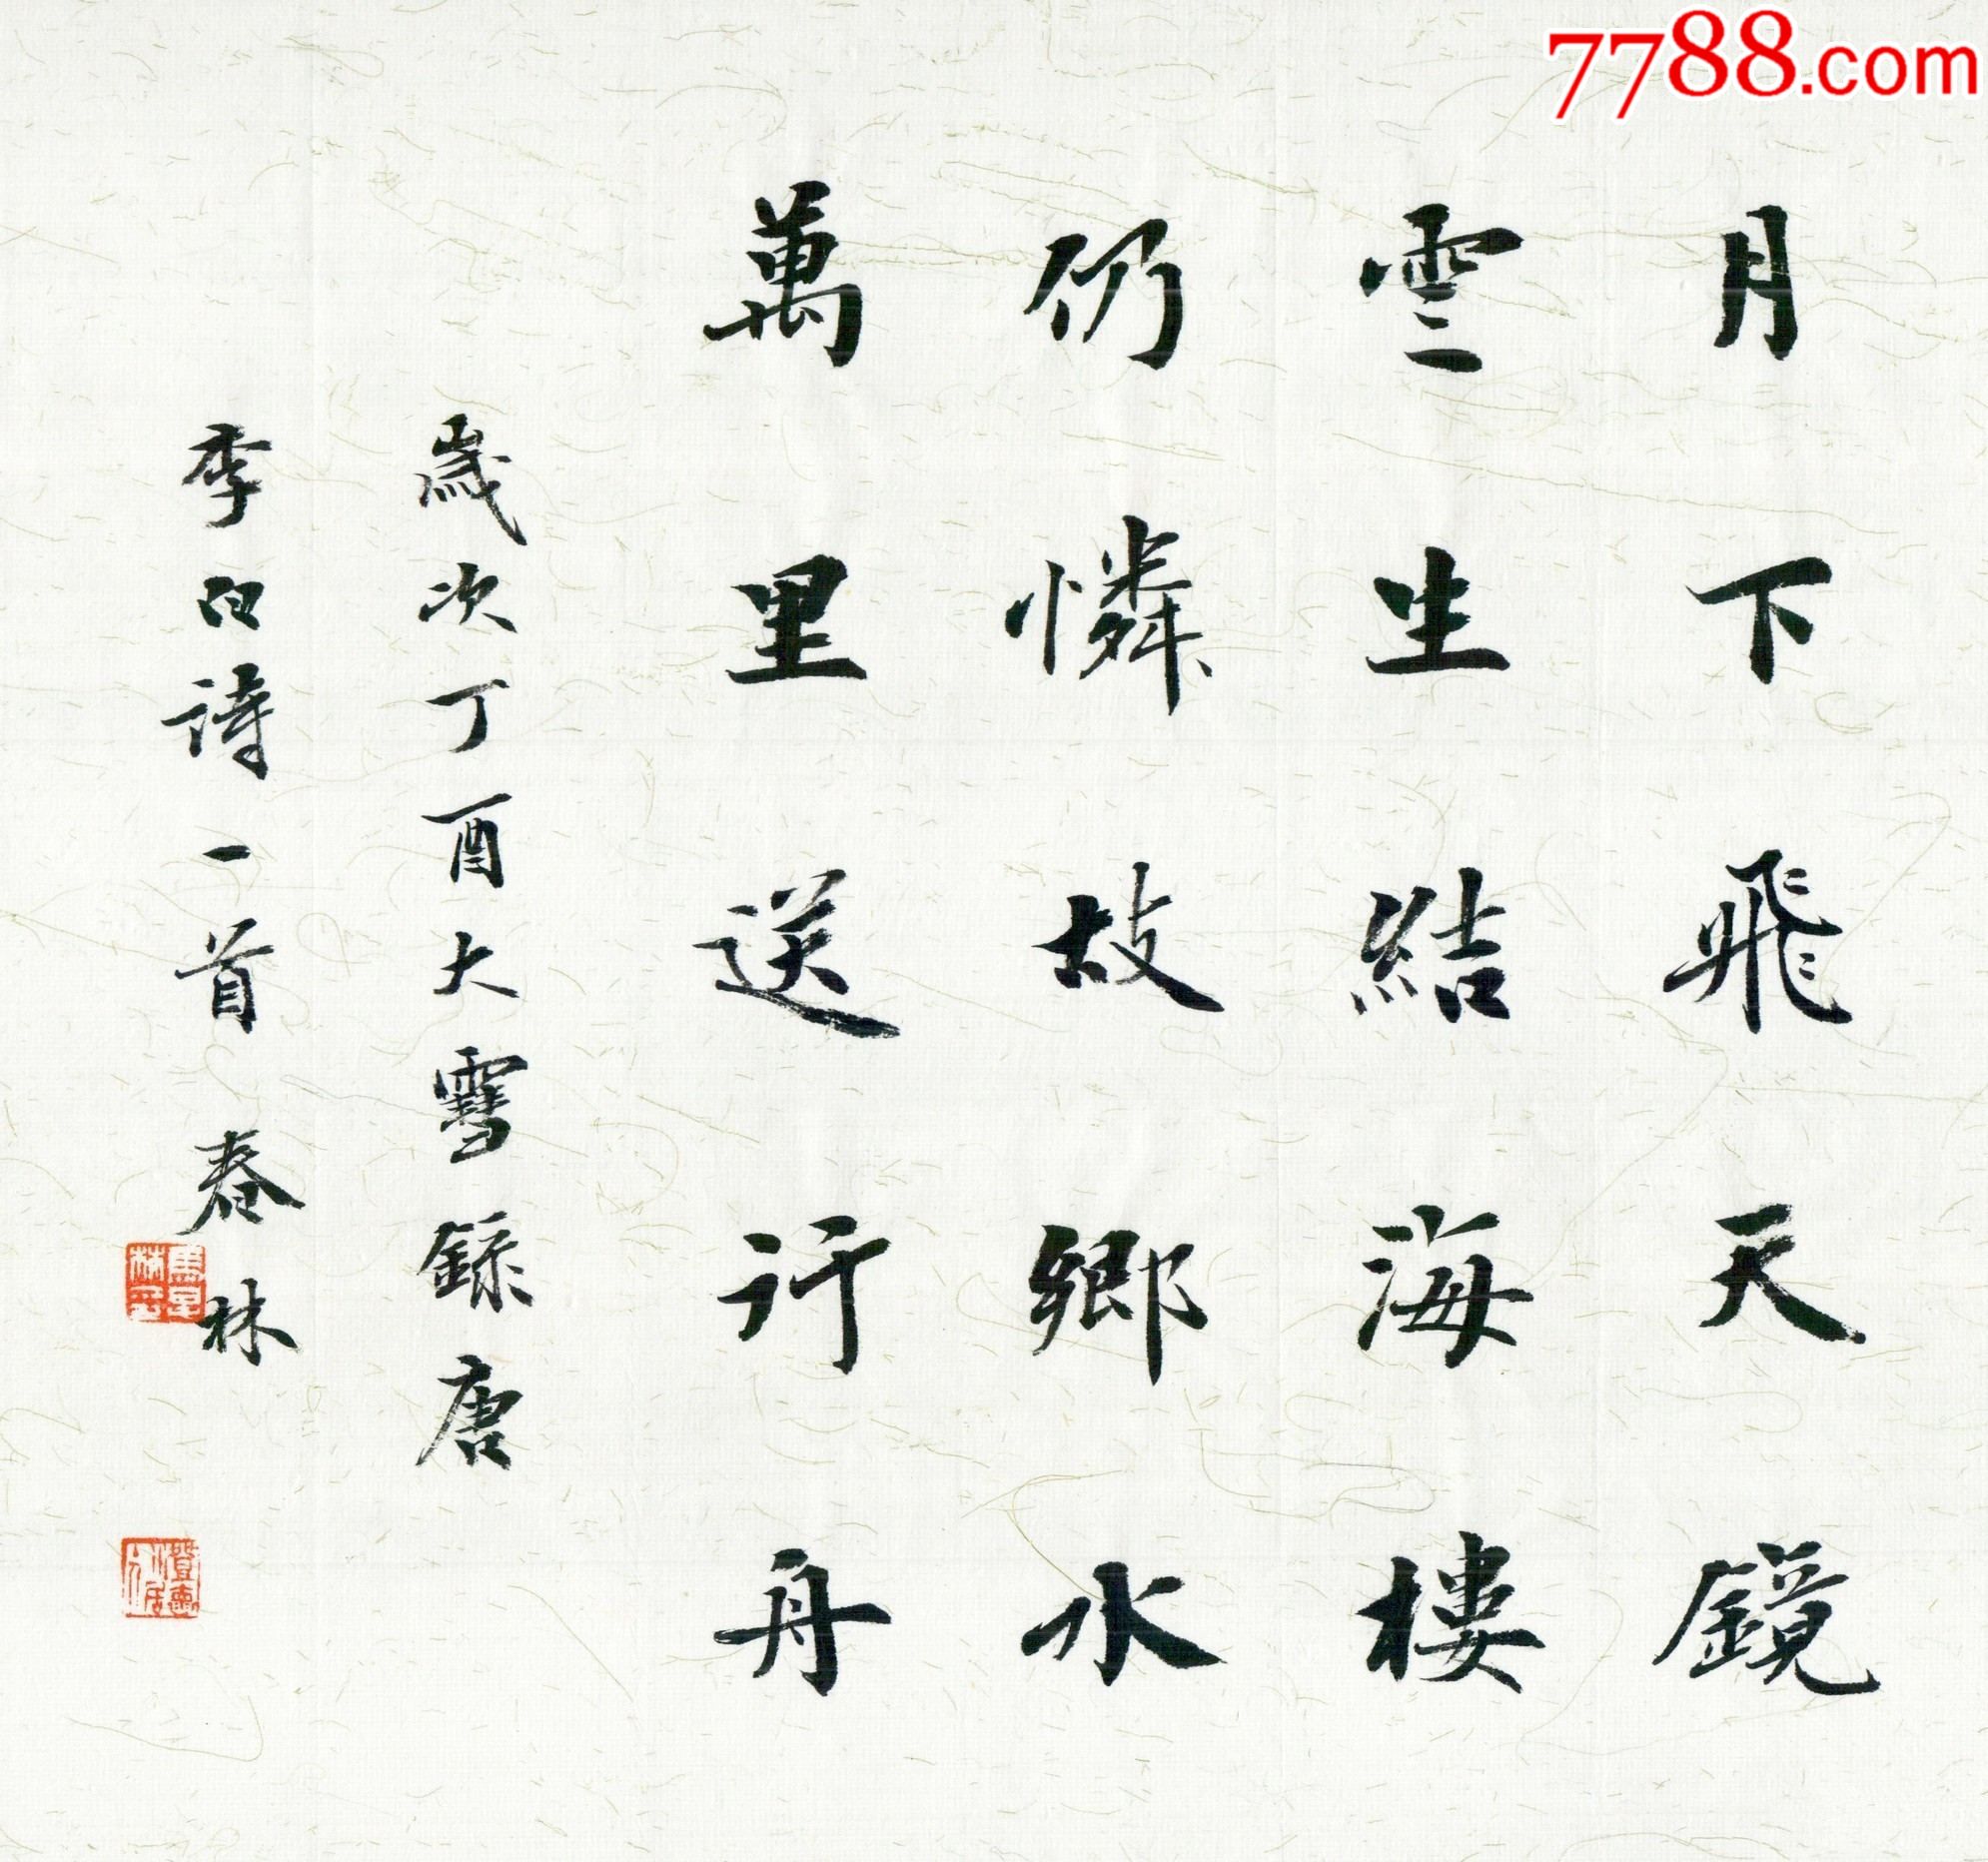 7788.com
月下飛天鏡
雲生結海樓
仍憐故鄉水
萬里送行舟
歲次丁酉大雪錄唐
李白詩一首 春林